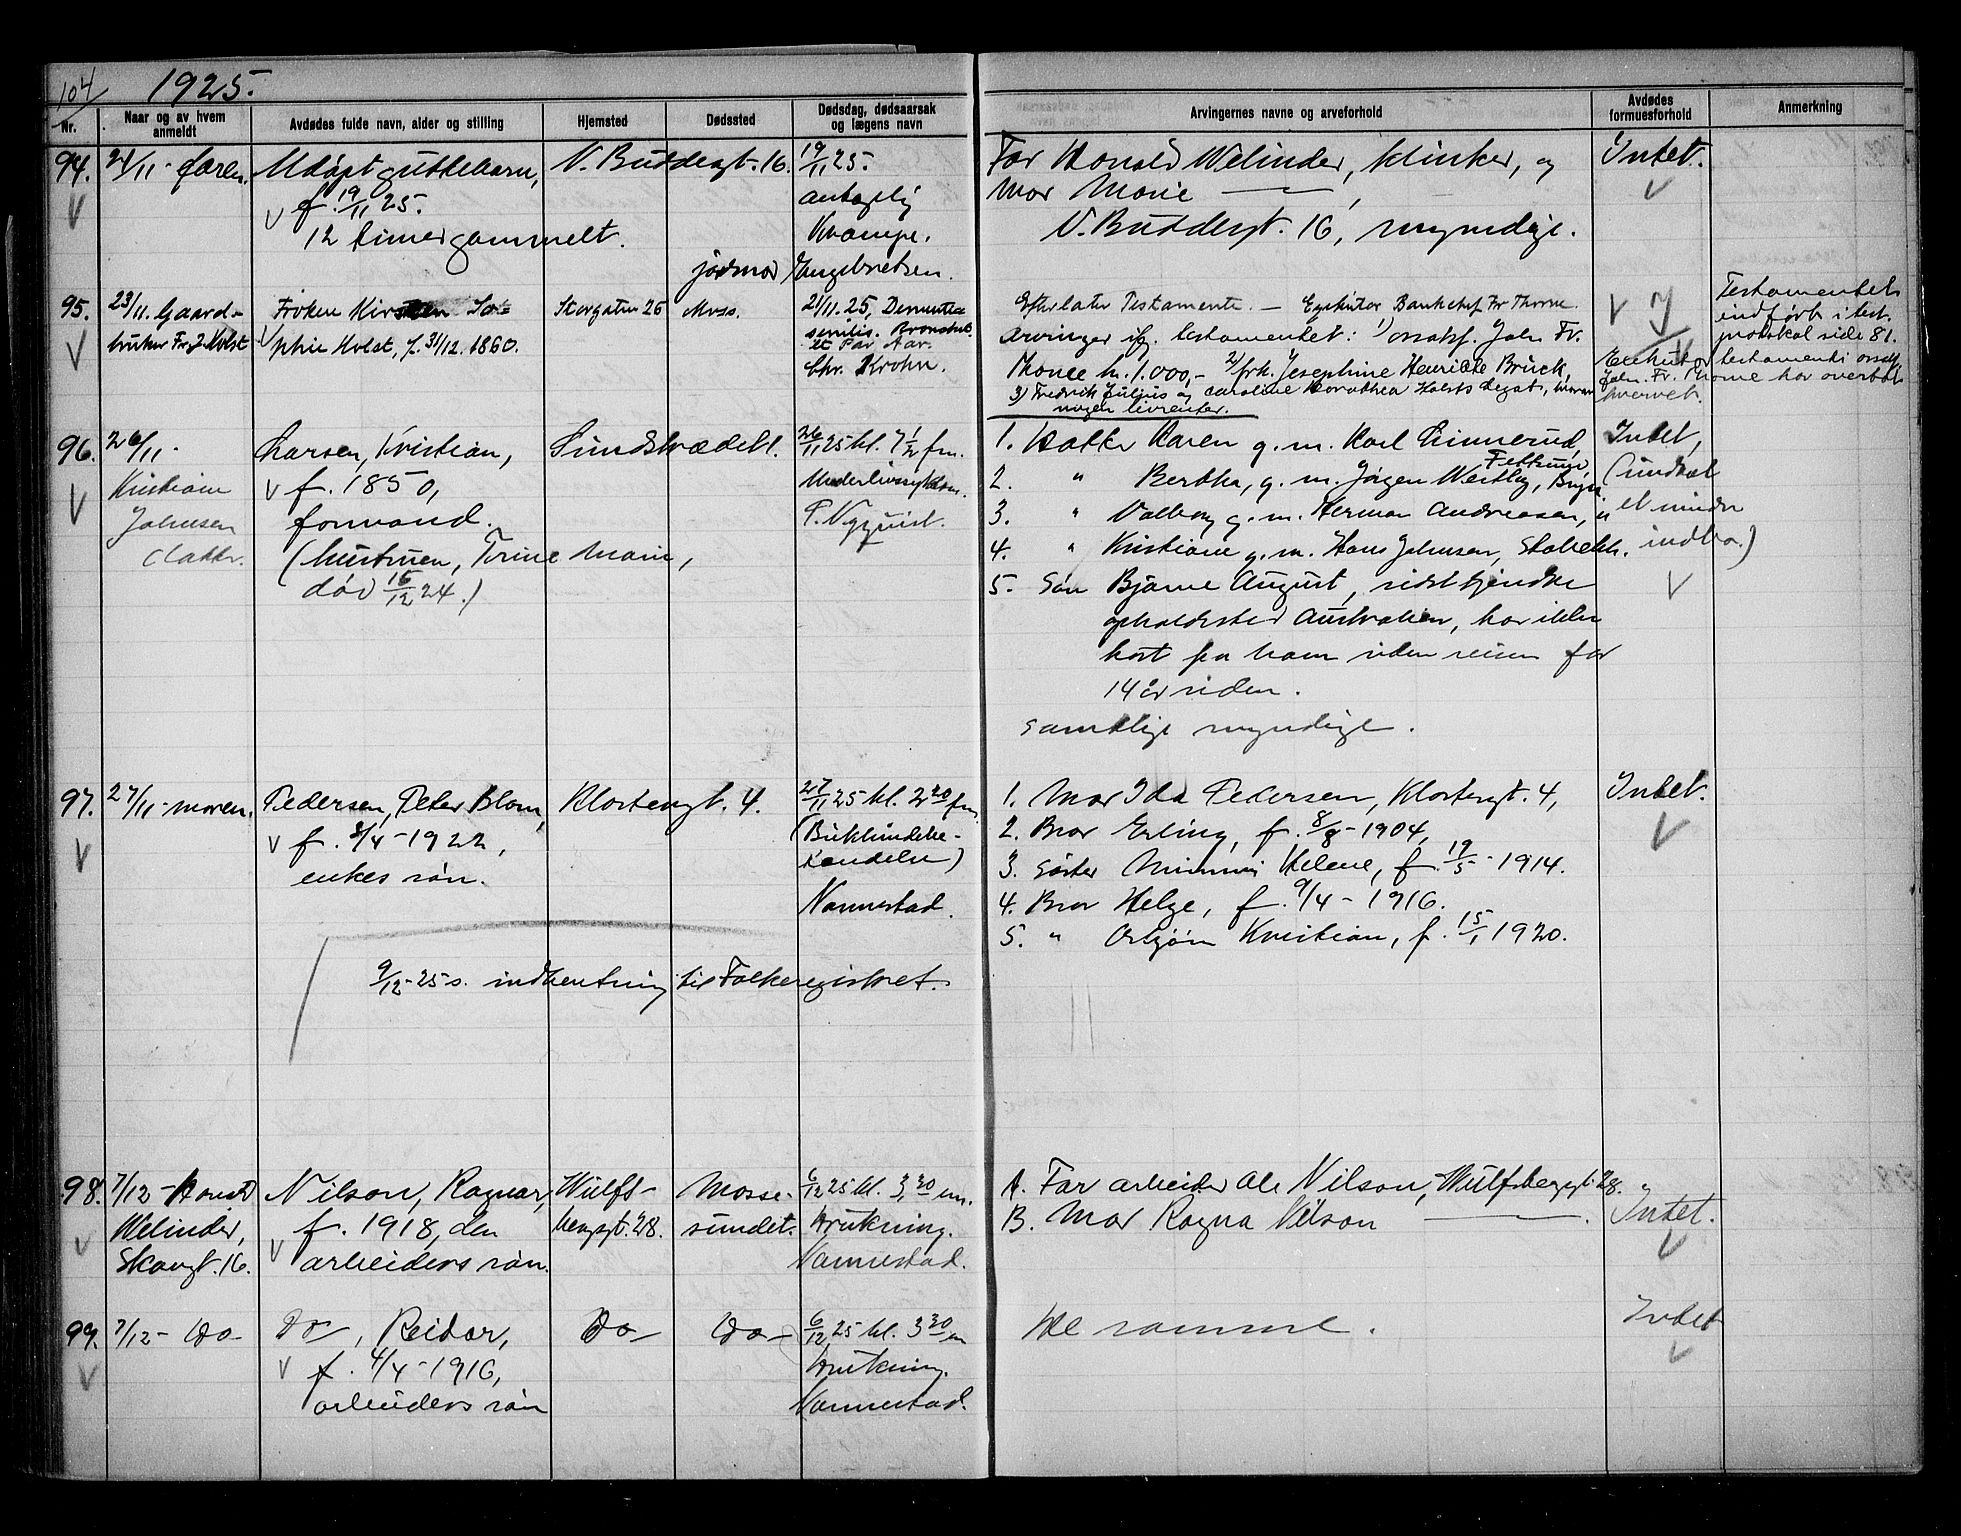 104
1925.
Nr.
Naar og av hvem anmeldt
Avdødes fulde navn, alder og stilling
Hjemsted
Dødssted
Dødsdag, dødsaarsak og lægens navn
Arvingernes navne og arveforhold
Avdødes formuesforhold
Anmerkning
94. 24/11 - faren. Udøpt guttebarn, V. Buddesgt. 16. 19/11 25.
f. 19/11 25. antagelig
12 timer gammelt. Krampe.
jordmor Engebretsen.
Far Harald Welinder, klinker, og Intet.
Mor Marie — ,
V. Buddesgt. 16, myndige.
95. 23/11. Gaard- Frøken Kirsten So- Storgaten 26 Moss. 21/11. 25, Dementia
bruker Fr. J. Holst phie Holst, f. 31/12. 1860. senilis.
Chr. Krohn.
Efterlater Testamente. — Exekutor Banksjef Fr Thorne.
Arvinger ifg. testamentet: 1) Joh. Fr.
Thorne kr. 1.000,- 2) frk. Josephine Henriette Brück,
3) Fredrik Julius og Caroline Dorothea Holsts legat,
nogen livrenter.
Testamentet
indført i test.
protokol side 81.
Exekutor testamenti
Joh. Fr. Thorne har overtat
hvervet.
96. 26/11 - Larsen, Kristian, Sundstrædet 1. 26/11 25 kl. 7 1/2 fm.
Kristiane f. 1850, Underlivssykdom.
Johnsen formand. P. Nyquist.
(datter. (hustruen, Trine Marie,
død 15/12 24.)
1. Datter Karen g. m. Karl Linnerud, Intet,
Fettsund,
2. " Bertha, g. m. Jørgen Westby, Bryn. (undtat
3. " Valborg g. m. Herman Andreasen, " et mindre
4. " Kristiane g. m. Hans Johnsen, indbo.)
5. Søn Bjarne August, sidst kjendte
opholdssted Australien, har ikke
hørt fra ham siden reisen for
14 år siden.
Samtlige myndige.
97. 27/11 - moren. Pedersen, Peter Blom, Klostergt. 4. 27/11 25 kl. 2 20 fm.
f. 8/4 - 1922, (Bukhindebe-
enkes søn. tændelse)
Nannestad.
1. Mor Ida Pedersen, Klostergt. 4, Intet.
2. Bror Erling, f. 8/8 - 1904,
3. Søster Mimmi Helene, f. 19/5 - 1914.
4. Bror Helge, f. 9/4 - 1916.
5. " Asbjørn Kristian, f. 15/1 1920.
9/12-25 s. indhentning til Folkeregistret.
98. 7/12 - Harald Nilson, Ragnar, Wulfs- Mosse- 6/12 25 kl. 3,30 em.
Welinder, f. 1918, den bergsgt. 28. sundet. Drukning.
Skovgt. 16. arbeiders søn. Nannestad.
A. Far arbeider Ole Nilson, Wulfsbergsgt. 28.
B. Mor Ragna Nilson — . Intet.
99. 7/12 - Do - Do, Reidar, Do - Do - 6/12 25 kl. 3 30 em
f. 4/4 - 1916, Drukning.
arbeiders søn Nannestad.
De samme. Intet